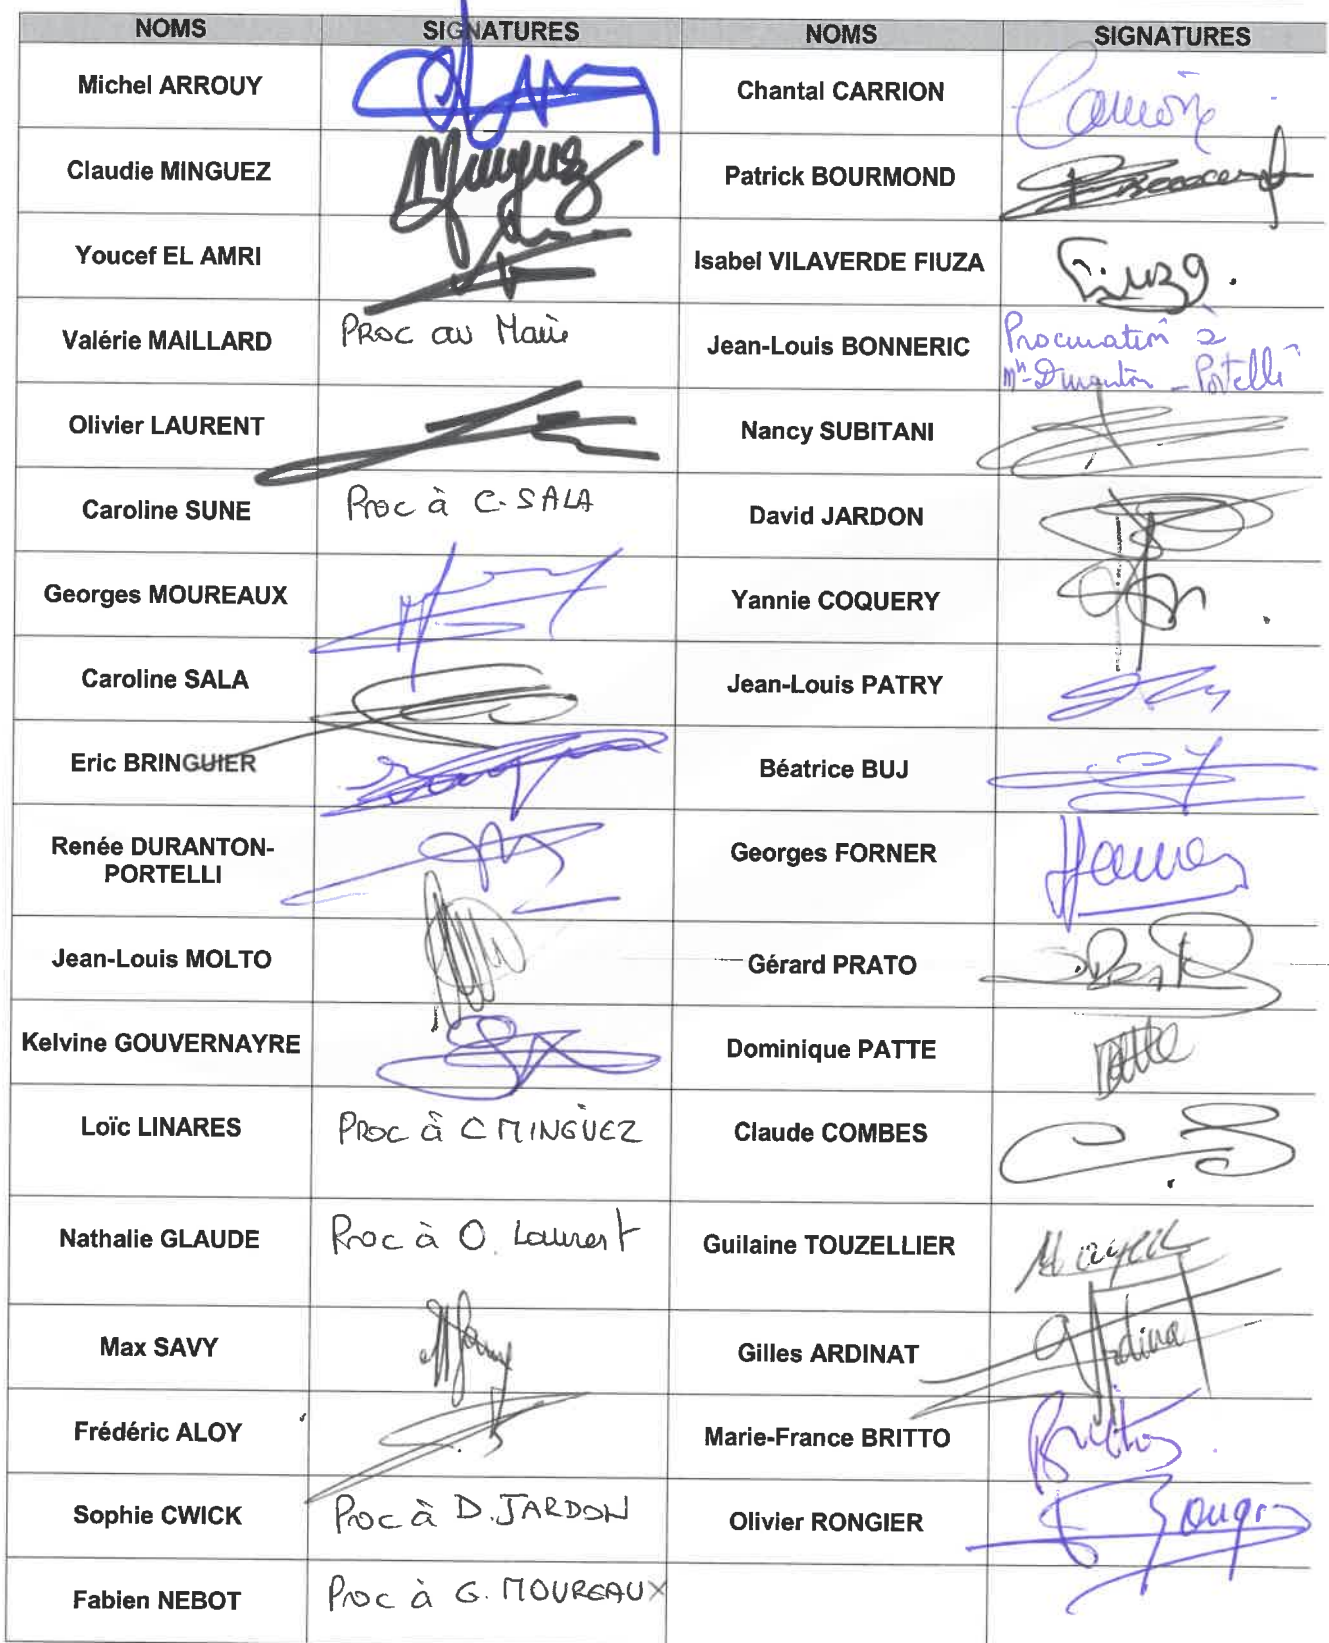 NOMS SIGNATURES NOMS SIGNATURES
Michel ARROUY Chantal CARRION
Claudie MINGUEZ Patrick BOURMOND
Youcef EL AMRI Isabel VILAVERDE FIUZA Fiuza.
Valérie MAILLARD PROC au Maire Jean-Louis BONNERIC Procuration à
Mme Duranton - Portelli
Olivier LAURENT Nancy SUBITANI
Caroline SUNE Proc à C. SALA David JARDON
Georges MOUREAUX Yannie COQUERY
Caroline SALA Jean-Louis PATRY
Eric BRINGUIER Béatrice BUJ
Renée DURANTON-
PORTELLI Georges FORNER
Jean-Louis MOLTO Gérard PRATO
Kelvine GOUVERNAYRE Dominique PATTE Patte
Loïc LINARES PROC à C MINGUEZ Claude COMBES
Nathalie GLAUDE Proc à O. Laurent Guilaine TOUZELLIER
Max SAVY Gilles ARDINAT Ardinat
Frédéric ALOY Marie-France BRITTO Britto
Sophie CWICK Proc à D. JARDON Olivier RONGIER
Fabien NEBOT Proc à G. MOUREAUX